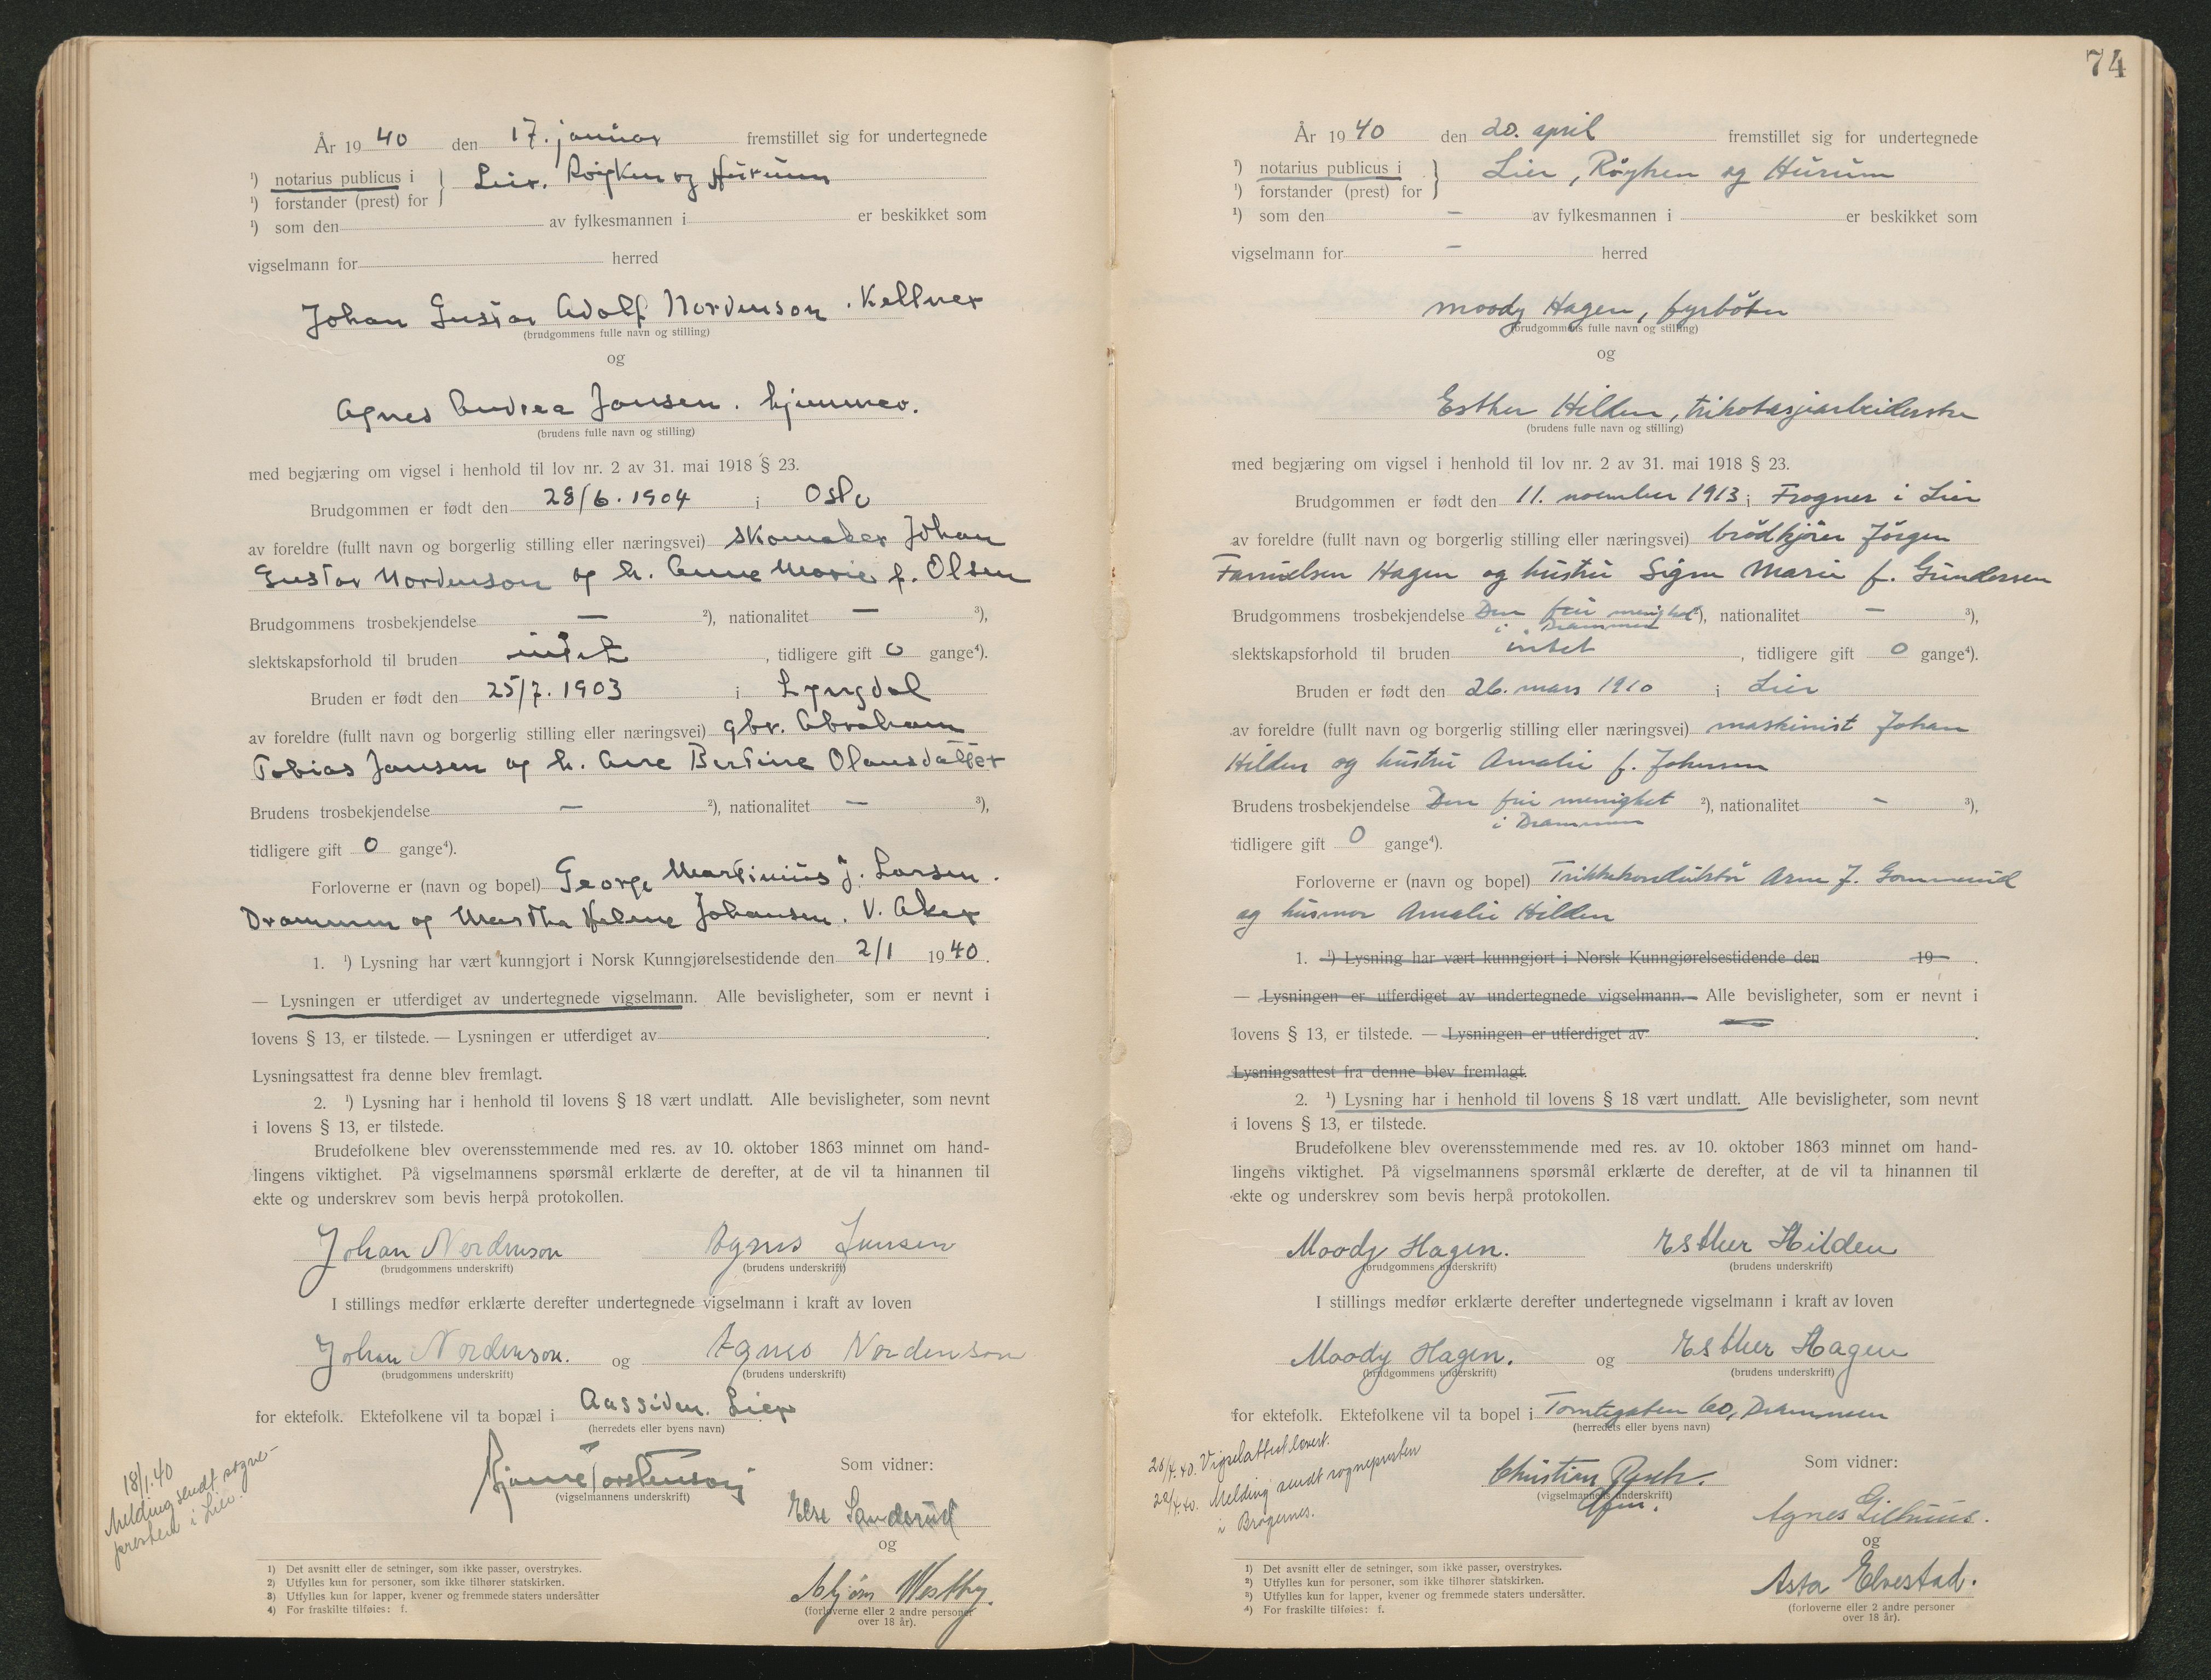 År 19 40 den 17. januar fremstillet sig for undertegnede
¹) notarius publicus i } Lier, Røyken og Hurum
¹) forstander (prest) for
¹) som den av fylkesmannen i er beskikket som
vigselmann for herred
Johan Gustav Adolf Nordenson. Kellner
(brudgommens fulle navn og stilling)
og
Agnes Andrea Jansen. hjemmev.
(brudens fulle navn og stilling)
med begjæring om vigsel i henhold til lov nr. 2 av 31. mai 1918 § 23.
Brudgommen er født den 28/6. 1904 i Oslo
av foreldre (fullt navn og borgerlig stilling eller næringsvei) skomaker Johan
Gustav Nordenson og h. Anne Marie f. Olsen
Brudgommens trosbekjendelse — ²), nationalitet — ³),
slektskapsforhold til bruden intet , tidligere gift 0 gange⁴).
Bruden er født den 25/7. 1903 i Lyngdal
av foreldre (fullt navn og borgerlig stilling eller næringsvei) gbr. Abraham
Tobias Jansen og h. Ane Bertine Olausdatter
Brudens trosbekjendelse — ²), nationalitet — ³),
tidligere gift 0 gange⁴).
Forloverne er (navn og bopel) George Martinius J. Larsen.
Drammen og Martha Helene Johansen. V. Aker
1. ¹) Lysning har vært kunngjort i Norsk Kunngjørelsestidende den 2/1 1940.
— Lysningen er utferdiget av undertegnede vigselmann. Alle bevisligheter, som er nevnt i
lovens § 13, er tilstede. — Lysningen er utferdiget av
Lysningsattest fra denne blev fremlagt.
2. ¹) Lysning har i henhold til lovens § 18 vært undlatt. Alle bevisligheter, som nevnt
i lovens § 13, er tilstede.
Brudefolkene blev overensstemmende med res. av 10. oktober 1863 minnet om hand-
lingens viktighet. På vigselmannens spørsmål erklærte de derefter, at de vil ta hinannen til
ekte og underskrev som bevis herpå protokollen.
Johan Nordenson Agnes Jansen
(brudgommens underskrift) (brudens underskrift)
I stillings medfør erklærte derefter undertegnede vigselmann i kraft av loven
Johan Nordenson. og Agnes Nordenson
(brudgommens underskrift) (brudens underskrift)
for ektefolk. Ektefolkene vil ta bopæl i Aassiden. Lier
(herredets eller byens navn)
18/1.40
Melding sendt sogne-
presten i Lier.
Bjarne Torstenson
(vigselmannens underskrift)
Som vidner:
Else Sanderud
og
Asbjørn Westby.
(forloverne eller 2 andre personer
over 18 år).
1) Det avsnitt eller de setninger, som ikke passer, overstrykes.
2) Utfylles kun for personer, som ikke tilhører statskirken.
3) Utfylles kun for lapper, kvener og fremmede staters undersåtter
4) For fraskilte tilføies: f.
74
År 19 40 den 20. april fremstillet sig for undertegnede
¹) notarius publicus i } Lier, Røyken og Hurum
¹) forstander (prest) for
¹) som den — av fylkesmannen i er beskikket som
vigselmann for — herred
Moody Hagen, fyrbøter
(brudgommens fulle navn og stilling)
og
Esther Hilden, trikotasjearbeiderske
(brudens fulle navn og stilling)
med begjæring om vigsel i henhold til lov nr. 2 av 31. mai 1918 § 23.
Brudgommen er født den 11. november 1913 i Frogner i Lier
av foreldre (fullt navn og borgerlig stilling eller næringsvei) brødkjører Jørgen
Hagen og hustru Signe Marie f. Gundersen
Brudgommens trosbekjendelse Den frie menighet ²), nationalitet — ³),
i Drammen
slektskapsforhold til bruden intet , tidligere gift 0 gange⁴).
Bruden er født den 26. mars 1910 i Lier
av foreldre (fullt navn og borgerlig stilling eller næringsvei) maskinist Johan
Hilden og hustru Amalie f. Johnsen
Brudens trosbekjendelse Den frie menighet ²), nationalitet — ³),
i Drammen
tidligere gift 0 gange⁴).
Forloverne er (navn og bopel) Trikkekonduktør Arne J. Gommerud
og husmor Amalie Hilden
1. ¹) Lysning har vært kunngjort i Norsk Kunngjørelsestidende den 19 .
— Lysningen er utferdiget av undertegnede vigselmann. — Alle bevisligheter, som er nevnt i
lovens § 13, er tilstede. — Lysningen er utferdiget av .
Lysningsattest fra denne blev fremlagt.
2. ¹) Lysning har i henhold til lovens § 18 vært undlatt. Alle bevisligheter, som nevnt
i lovens § 13, er tilstede.
Brudefolkene blev overensstemmende med res. av 10. oktober 1863 minnet om hand-
lingens viktighet. På vigselmannens spørsmål erklærte de derefter, at de vil ta hinannen til
ekte og underskrev som bevis herpå protokollen.
Moody Hagen. Esther Hilden
(brudgommens underskrift) (brudens underskrift)
I stillings medfør erklærte derefter undertegnede vigselmann i kraft av loven
Moody Hagen. og Esther Hagen
(brudgommens underskrift) (brudens underskrift)
for ektefolk. Ektefolkene vil ta bopel i Tomtegaten 60, Drammen
(herredets eller byens navn)
20/4.40. Vigselattest levert.
22/4.40. Melding sendt sognepresten
i Bragernes.
Christian
(vigselmannens underskrift)
Som vidner:
Agnes Lilhuus.
og
Asta Elvestad.
(forloverne eller 2 andre personer
over 18 år).
1) Det avsnitt eller de setninger, som ikke passer, overstrykes.
2) Utfylles kun for personer, som ikke tilhører statskirken.
3) Utfylles kun for lapper, kvener og fremmede staters undersåtter.
4) For fraskilte tilføies: f.